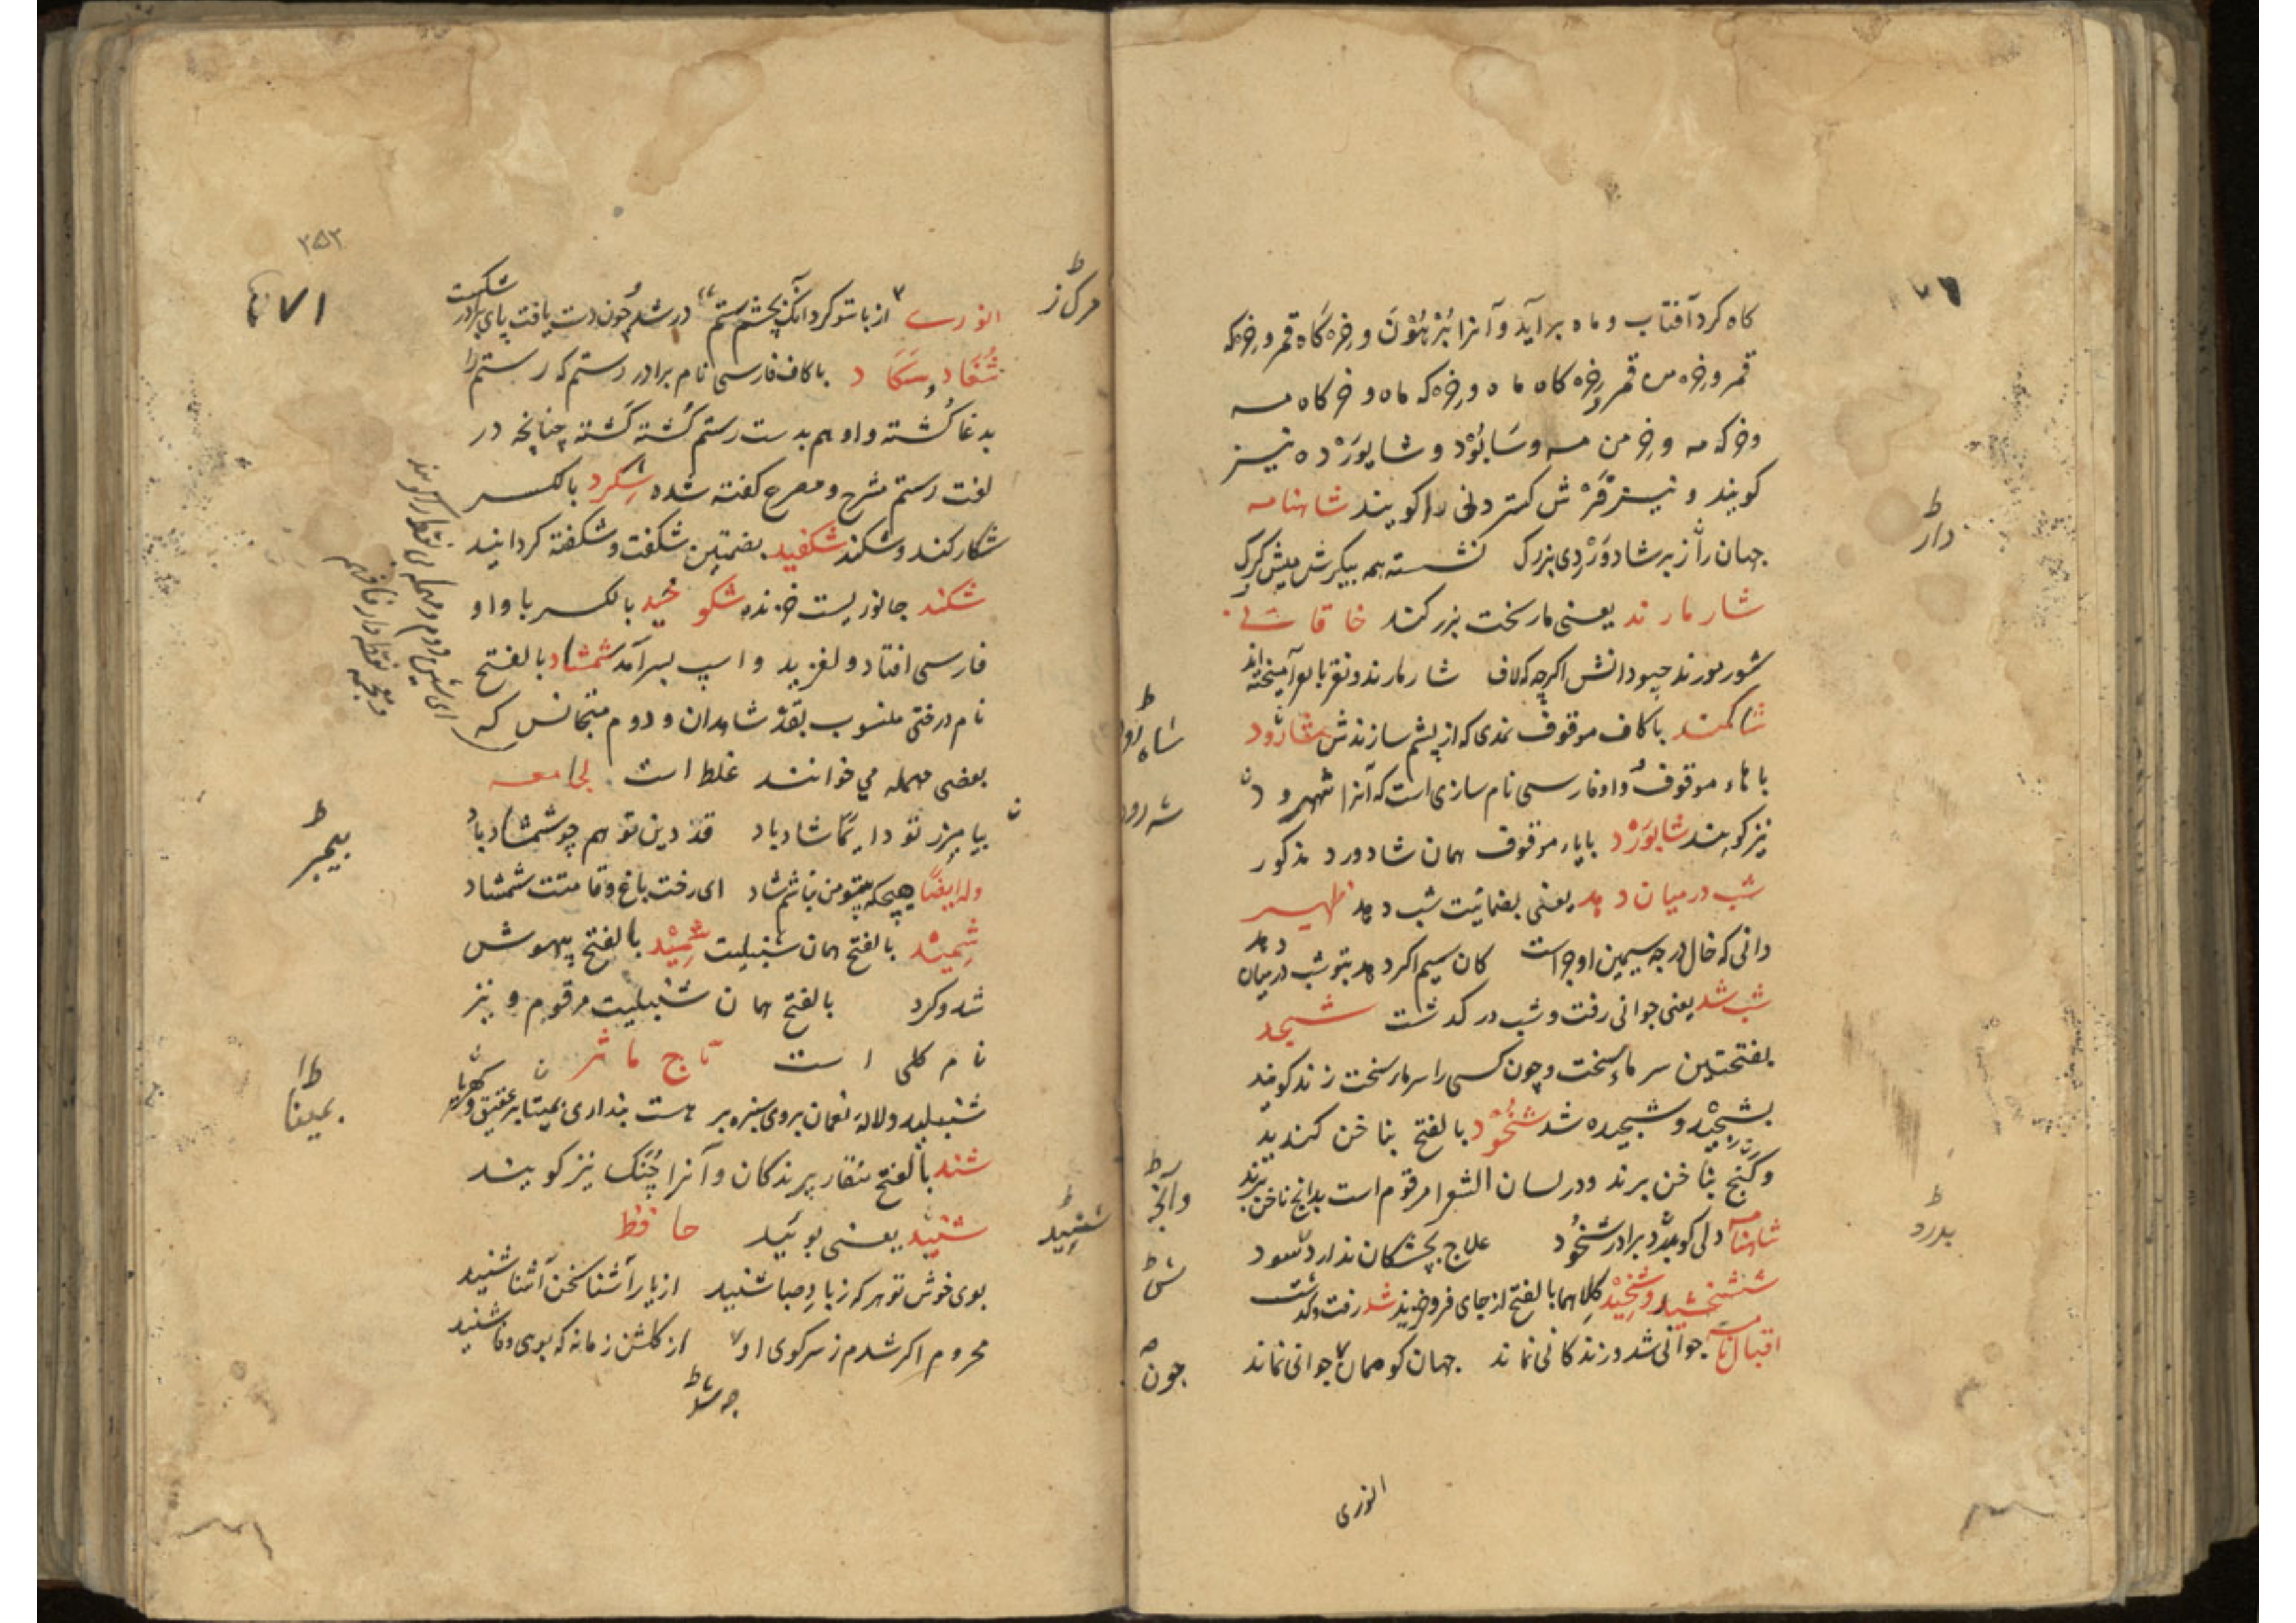 کاه کرد آفتاب و ماه برآید و آنرا بَرْهُوْن و خره کاه قمر و خرکه
قمر و خره من قمر و خره کاه ماه و خرکه ماه و خرکاه مه
و خرکه مه و خرمن مه و سَابُوْد و شاپورده نیز
کویند و نیز فرش کستردنی را کویند شاهنامه
جهان را ز بر شادوَرْدِی بزرک نشسته همه پیکرش میش کرک
شار مارند یعنی مار سخت بزرکند خاقانی
دارط
شاکمند باکاف موقوف نمدی که از پشم سازندش شاه رود
شاه رود ط
با هاء موقوف و واو فارسی نام سازی است که آنرا شهرود
شه رود
نیز کویند شاپوَرْد باپاء موقوف همان شادورد مذکور
شب در میان دهد یعنی بضمانیت شب دهد ظهیر
دانی که خال درجه سیمین او جو است کان سیم اکر دهد بتو شب در میان دهد
شب شد یعنی جوانی رفت و شب در کذشت شجد
بفتحتین سرماء سخت و چون کسی را سرما سخت زند کویند
بشجید و شجیده شد شخُوْد بالفتح بناخن کندید
و کنج بناخن برند و در لسان الشعرا مرقوم است بدانچ ناخن برند
وآنچه ط
شاهنامه دلی کو بدرد برادر شخُود علاج پچشکان نداردش سود
بدرد ط
ش ط
و شخِیْد کلاهما بالفتح از جای فرو خزید شد رفت و کذشت
اقبال نامه جوانی شد و زندکانی نماند جهان کو ممان چون جوانی نماند
چون
انوری
۲۵۲
۷۱
انوری از با تو کرد آنک بچشم ستم در شد چون دست یافت پای برادر شکست
شُغَاد و سَکَاد باکاف فارسی نام برادر رستم که رستم را
بدغا کشته و او هم بدست رستم کُشته کَشته چنانچه در
لغت رستم مشرح و مصرح کفته شده اِشکرد بالکسر
شکار کند و شکند شکفید بضمتین شکفت و شکفته کردانید
شکند جانوریست خزنده شکوخید بالکسر با واو
فارسی افتاد و لغزید و اسپ بسر آمد شمشاد بالفتح
نام درختی منسوب بقد شاهدان و دوم متجانس که
بعضی مهمله می خوانند غلط است لجامعه
قد دین تو هم چو شمشاد باد
وله ایضًا هیچکه بیتو من نباشم شاد ای رخت باغ و قامتت شمشاد
شِمِیْد بالفتح همان شنبلیت شمِیْد بالفتح بیهوش
شد و کرد بالفتح همان شنبلیت مرقوم و نیز
نام کلی است تاج ماثر
شنبلید و لاله نعمان بروی سبزه بر هست پنداری بمینا بر عقیق و کهربا
بمینا ط
شند بالفتح منقار پرندکان و آنرا چُنْک نیز کویند
شنید یعنی بوئید حافظ
شنید ط
بوی خوش تو هر که ز باد صبا شنید از یار آشنا سخن آشنا شنید
محروم اکر شدم ز سر کوی او از کلشن زمانه که بوی وفا شنید
چه شد ط